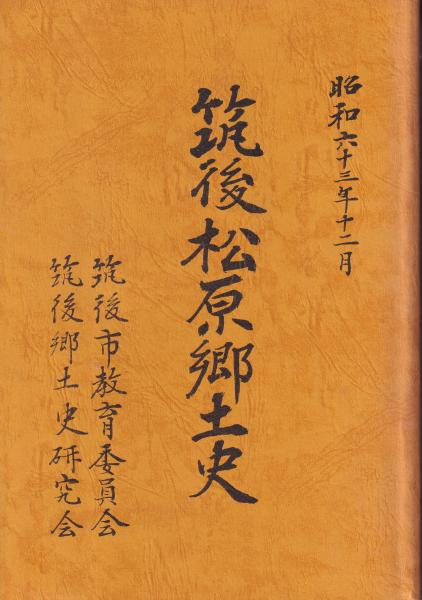 昭和六十三年十二月
筑後松原郷土史
筑後市教育委員会
筑後郷土史研究会